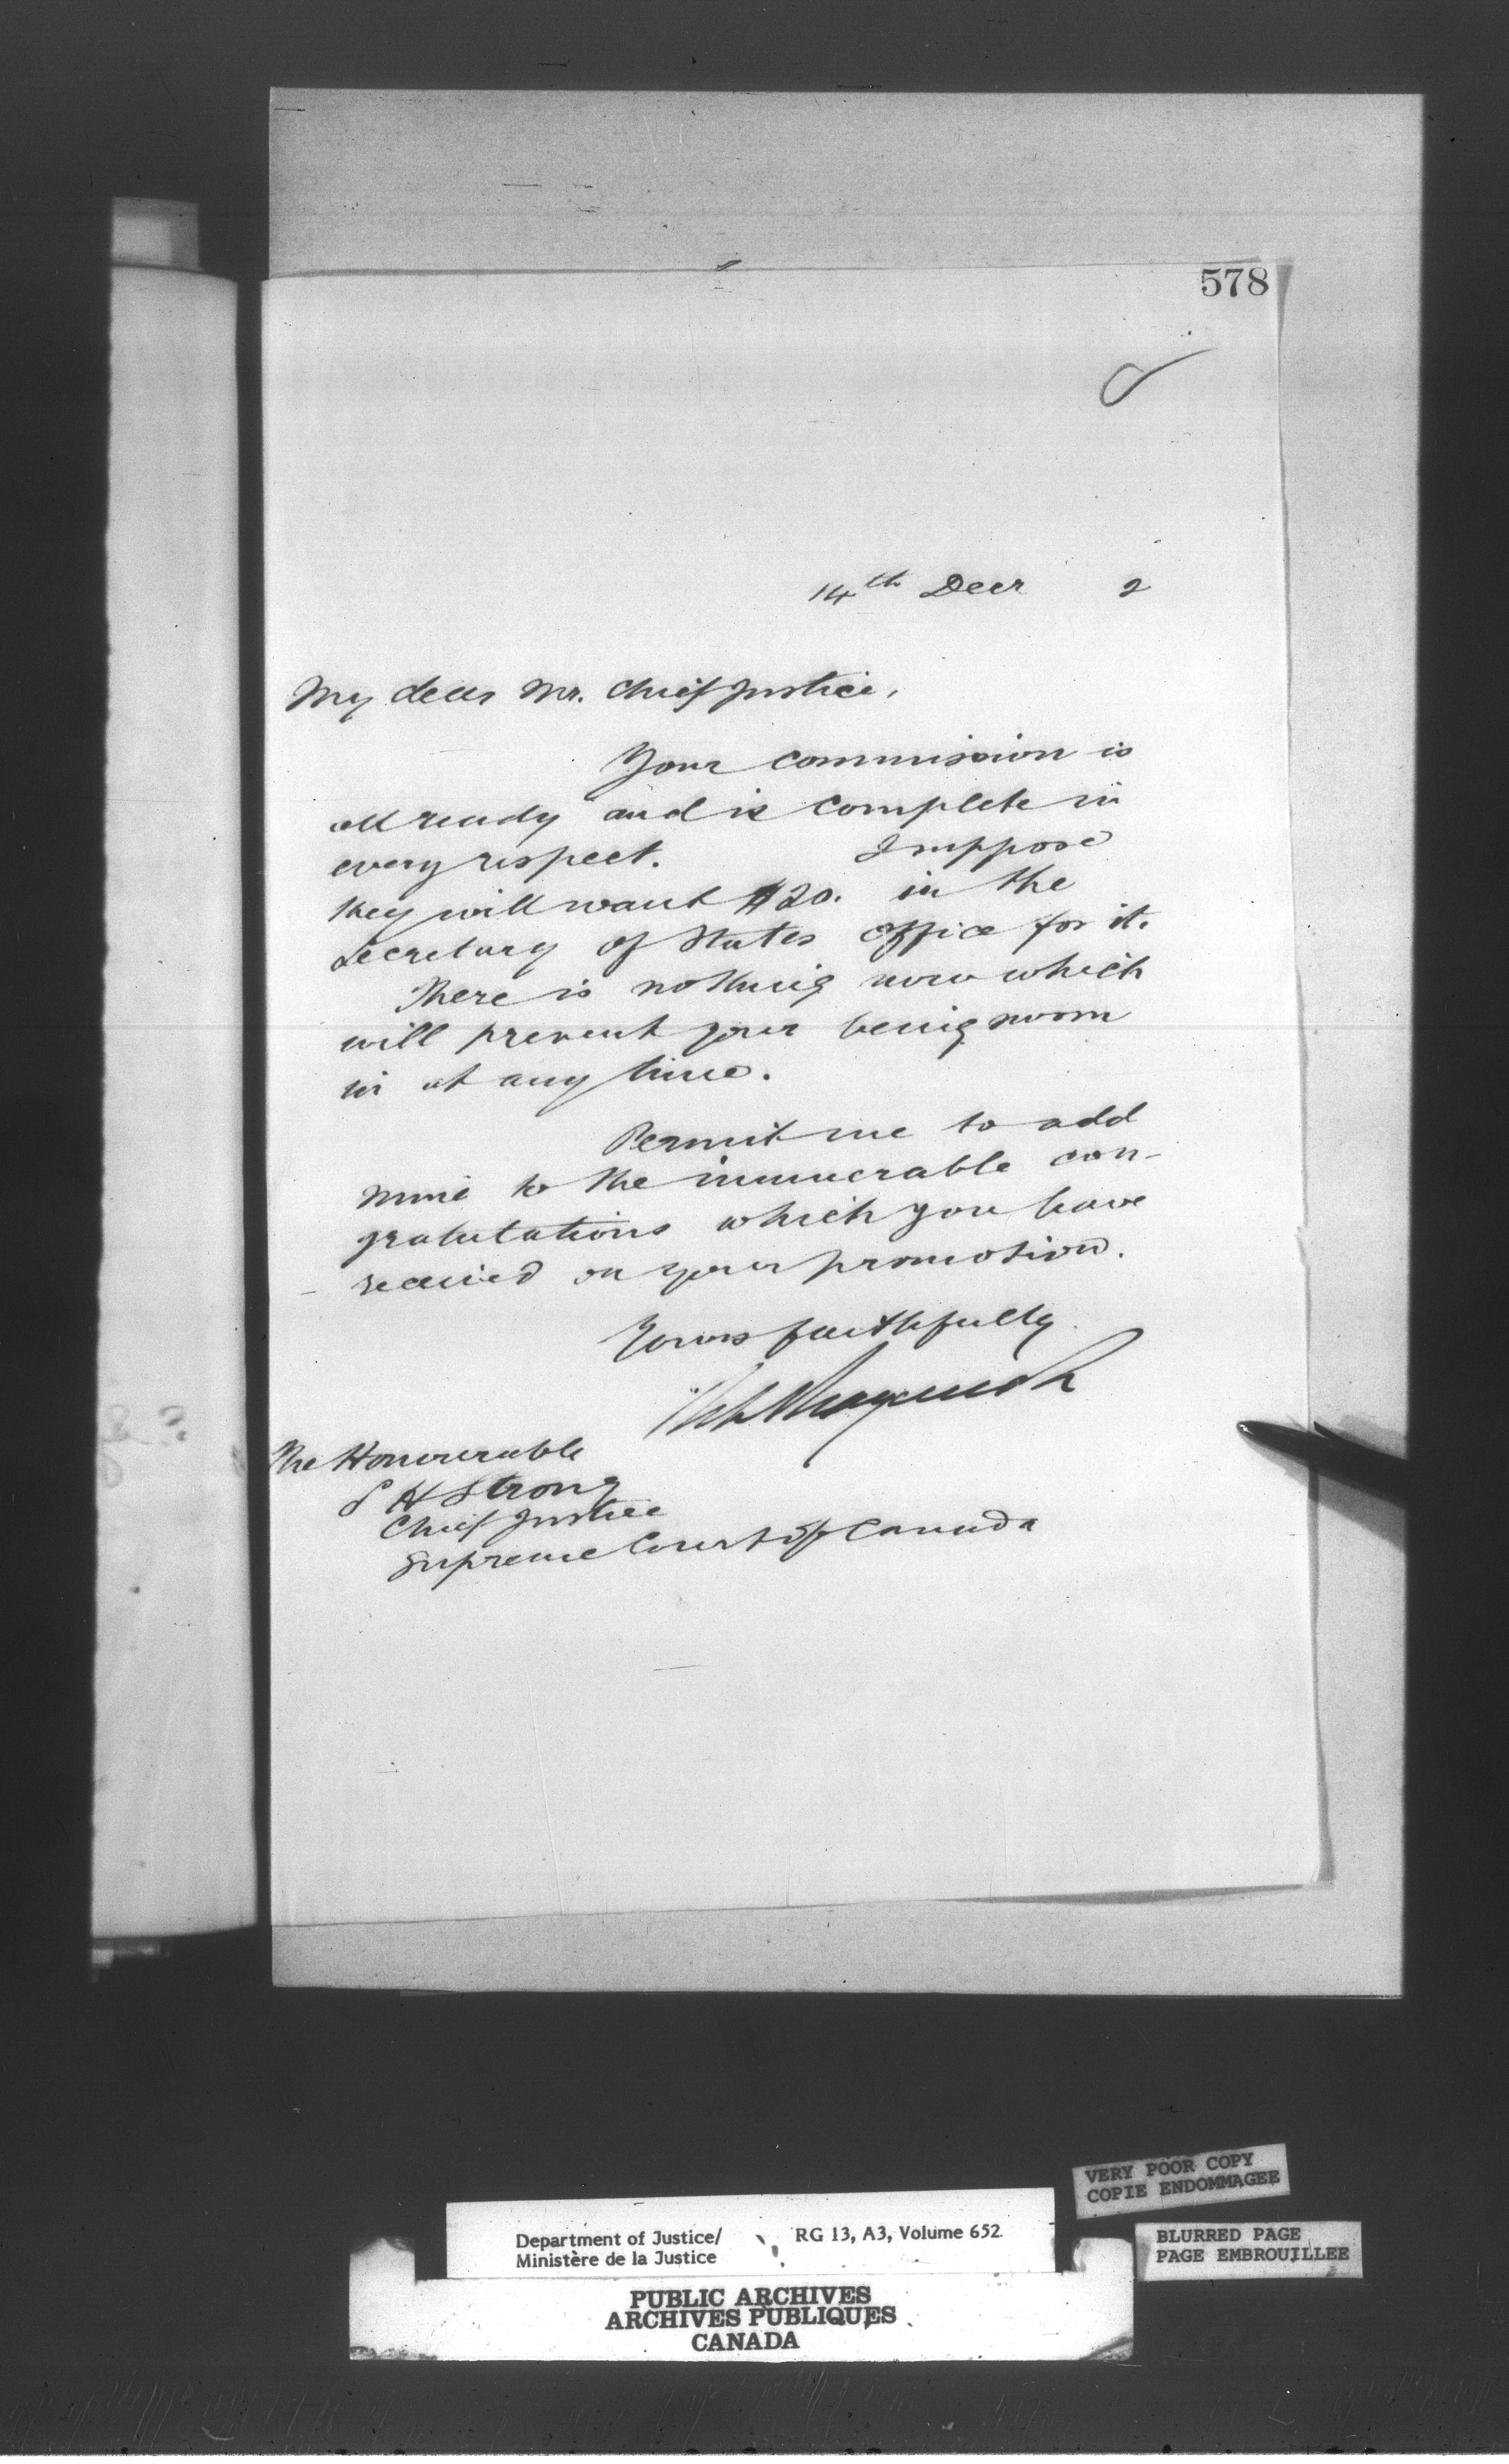 578
14th Decr 2
My dear Mr. Chief Justice,
Your commission is
all ready and is complete in
every respect. I suppose
they will want $20. in the
Secretary of States office for it.
There is nothing now which
will prevent your being sworn
in at any time.
Permit me to add
mine to the innumerable con-
gratulations which you have
received on your promotion.
Yours faithfully
The Honourable
S H Strong
Chief Justice
Supreme Court of Canada
VERY POOR COPY
COPIE ENDOMMAGEE
Department of Justice/ RG 13, A3, Volume 652
Ministère de la Justice
BLURRED PAGE
PAGE EMBROUILLEE
PUBLIC ARCHIVES
ARCHIVES PUBLIQUES
CANADA